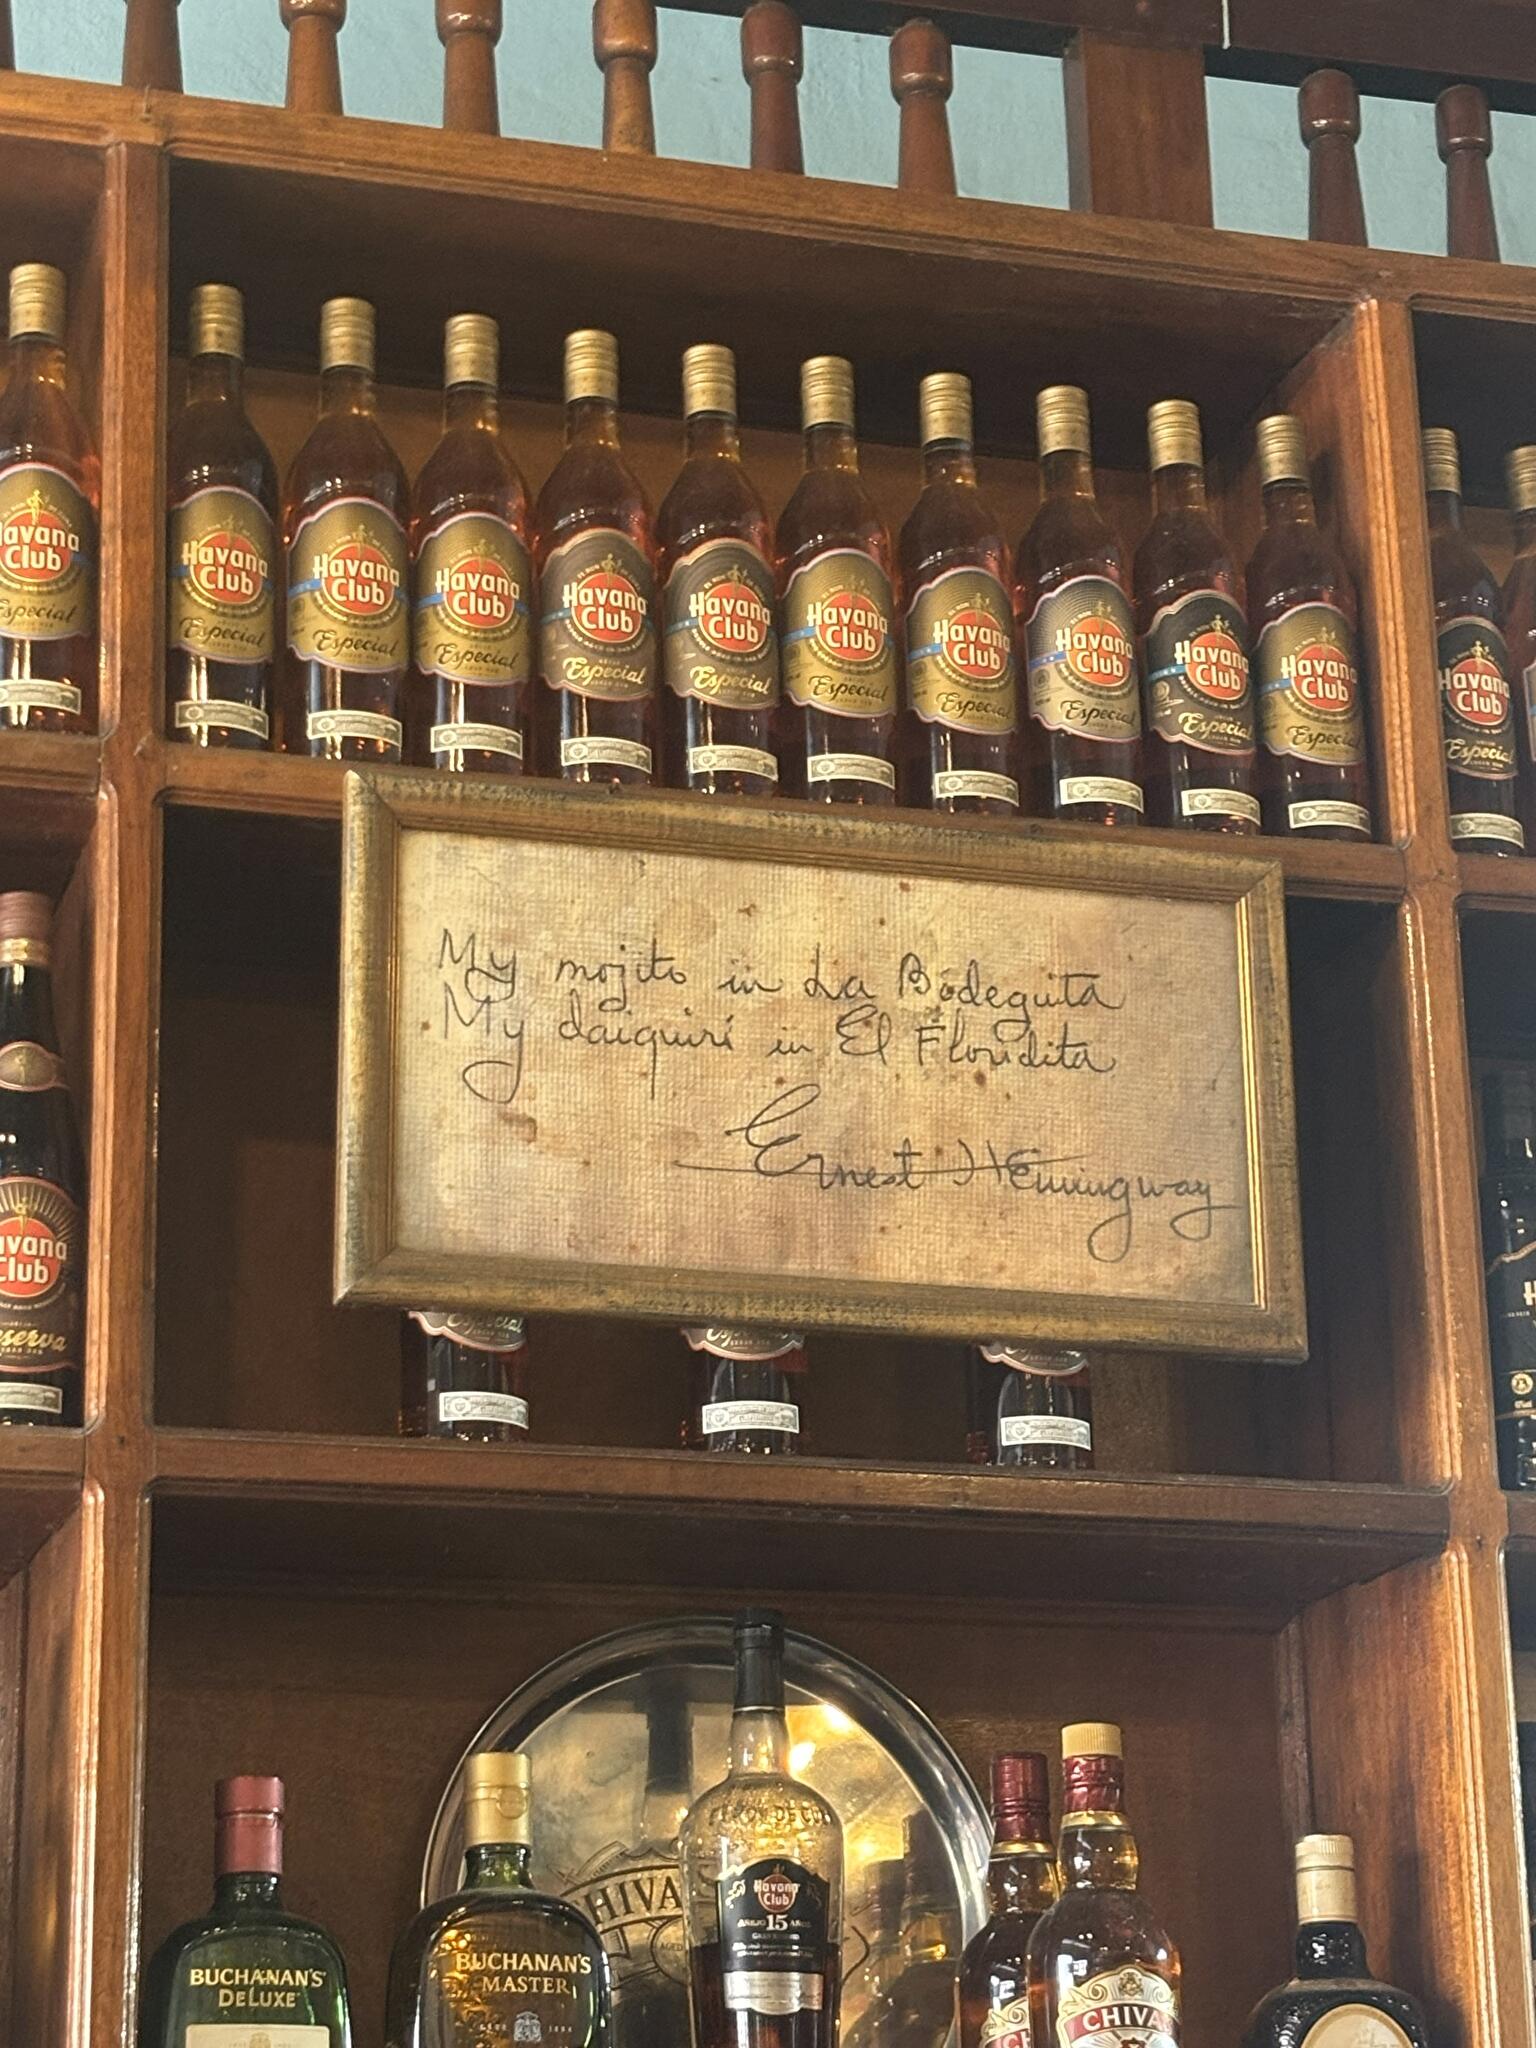 Havana Club Especial
Havana Club Especial
Havana Club Especial
Havana Club Especial
Havana Club Especial
Havana Club Especial
Havana Club Especial
Havana Club Especial
Havana Club Especial
Havana Club Especial
Havana Club Especial
Havana Club Especial
My mojito in La Bodeguita
My daiquirí in El Floridita
Ernest Hemingway
Havana
Club
Especial
Especial
Especial
BUCHANAN'S
DELUXE
BUCHANAN'S
MASTER
CHIVAS
Havana
Club
AÑEJO 15 AÑOS
CHIVAS